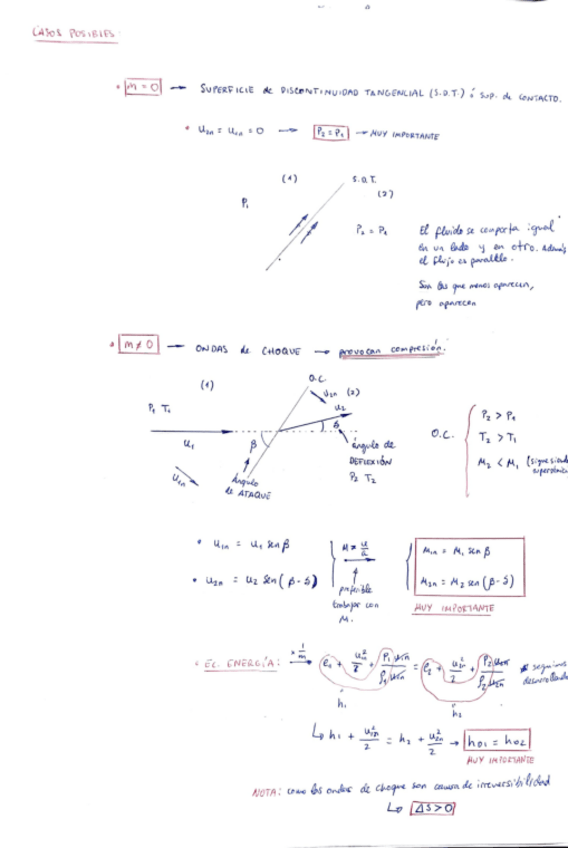 CASOS POSIBLES:
• m = 0 → SUPERFICIE de DISCONTINUIDAD TANGENCIAL (S.D.T.) ó SUP. de CONTACTO.
• U2n = U1n = 0 → P2 = P1 → MUY IMPORTANTE
(1) S.D.T.
(2)
P1
P2 = P1
El fluido se comporta igual
en un lado y en otro. Además
el flujo es paralelo.
Son las que menos aparecen,
pero aparecen
• m ≠ 0 → ONDAS de CHOQUE → provocan compresión.
(1) O.C. U2n (2)
P1 T1 U2
U1 β δ
U1n
Ángulo
de ATAQUE
ángulo de
DEFLEXIÓN
P2 T2
O.C. { P2 > P1
T2 > T1
M2 < M1 (sigue siendo
• U1n = U1 sen β
• U2n = U2 sen (β - δ)
M = u/a
preferible
trabajar con
M.
M1n = M1 sen β
M2n = M2 sen (β - δ)
MUY IMPORTANTE
• EC. ENERGÍA: × 1/m → e1 + U1n²/2 + P1 U1n/ρ1 U1n = e2 + U2n²/2 + P2 U2n/ρ2 U2n * seguimos
h1 h2
↳ h1 + U1n²/2 = h2 + U2n²/2 → h01 = h02
MUY IMPORTANTE
NOTA: como las ondas de choque son causa de irreversibilidad
↳ ΔS > 0